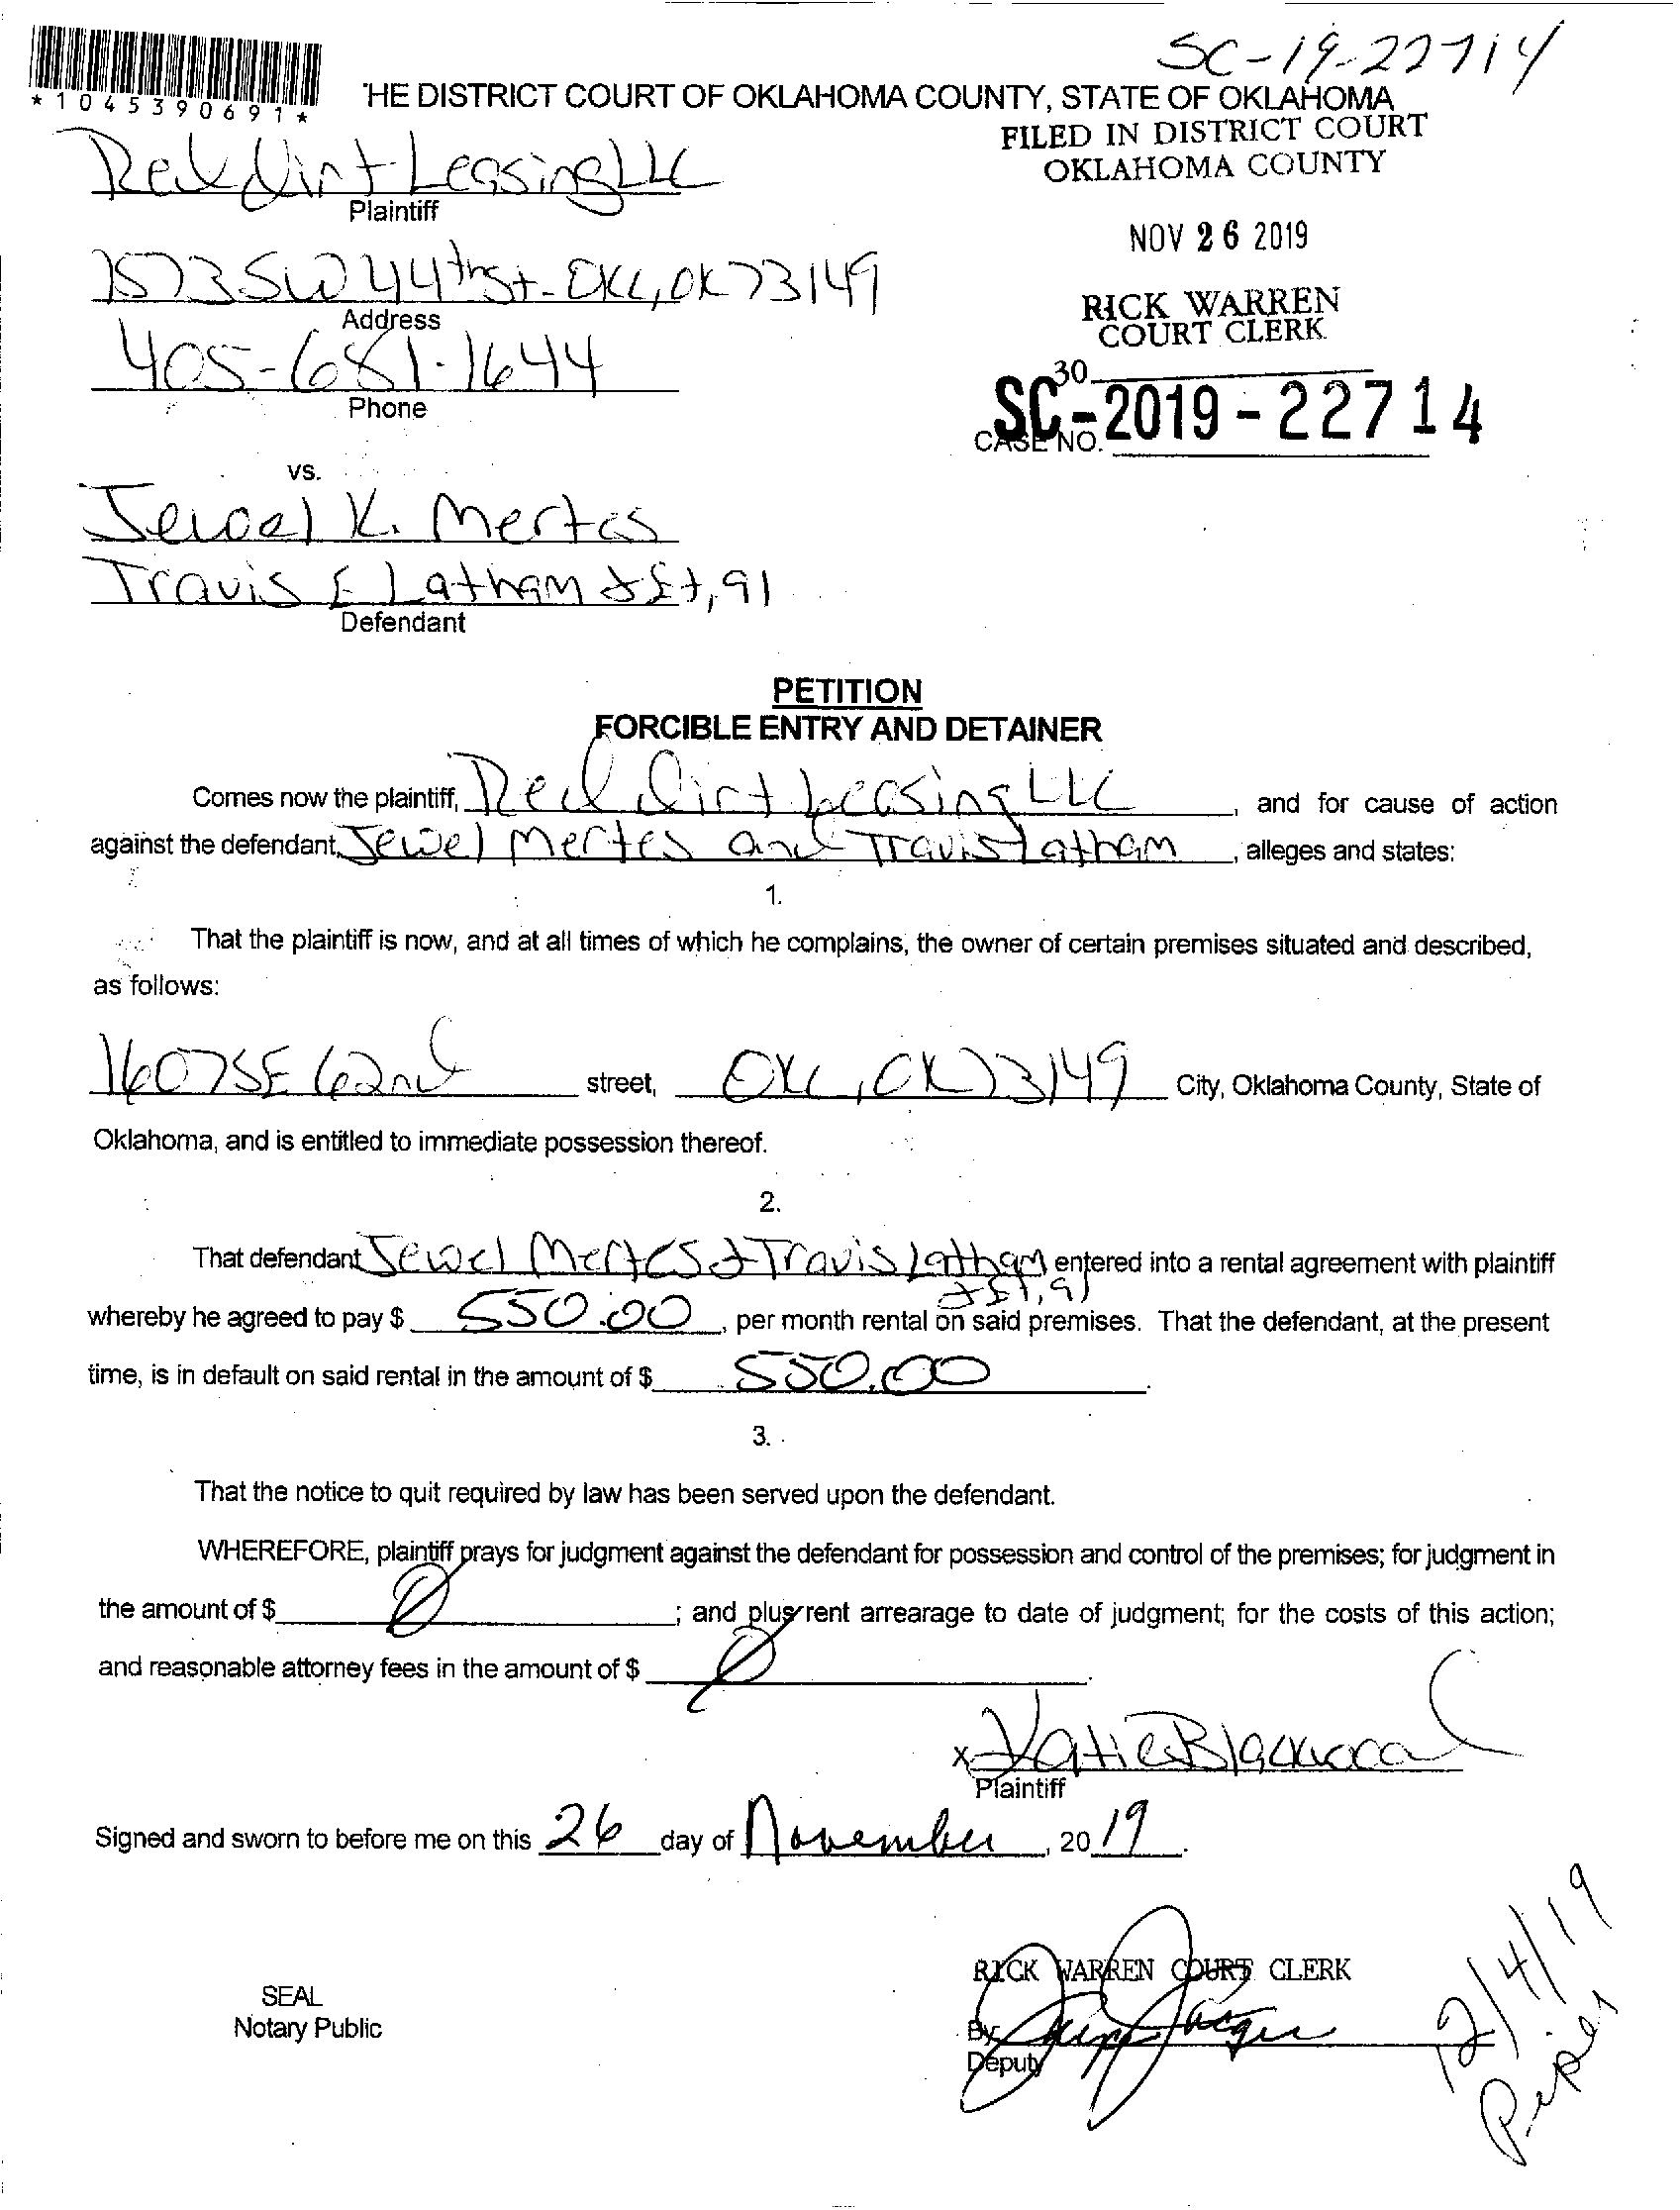 SC-19-22714
*1045390691*
HE DISTRICT COURT OF OKLAHOMA COUNTY, STATE OF OKLAHOMA
FILED IN DISTRICT COURT
OKLAHOMA COUNTY
Red Dirt Leasing LLC
Plaintiff
NOV 26 2019
1573 SW 44th St. OKC, OK 73149
Address
RICK WARREN
COURT CLERK
405-681-1644
Phone
30
SC-2019-22714
CASE NO.
vs.
Jewel K. Mertes
Travis E Latham & Et, al
Defendant
PETITION
FORCIBLE ENTRY AND DETAINER
Comes now the plaintiff, Red Dirt Leasing LLC, and for cause of action
against the defendant, Jewel Mertes and Travis Latham, alleges and states:
1.
That the plaintiff is now, and at all times of which he complains, the owner of certain premises situated and described,
as follows:
1607 SE 62nd street, OKC, OK 73149 City, Oklahoma County, State of
Oklahoma, and is entitled to immediate possession thereof.
2.
That defendant Jewel Mertes & Travis Latham entered into a rental agreement with plaintiff
& Et, al
whereby he agreed to pay $ 550.00, per month rental on said premises. That the defendant, at the present
time, is in default on said rental in the amount of $ 550.00.
3.
That the notice to quit required by law has been served upon the defendant.
WHEREFORE, plaintiff prays for judgment against the defendant for possession and control of the premises; for judgment in
the amount of $ 0; and plus rent arrearage to date of judgment; for the costs of this action;
and reasonable attorney fees in the amount of $ 0.
x Katie Blackwood
Plaintiff
Signed and sworn to before me on this 26 day of November, 2019.
RICK WARREN COURT CLERK
SEAL
Notary Public
By
Deputy
12/4/19